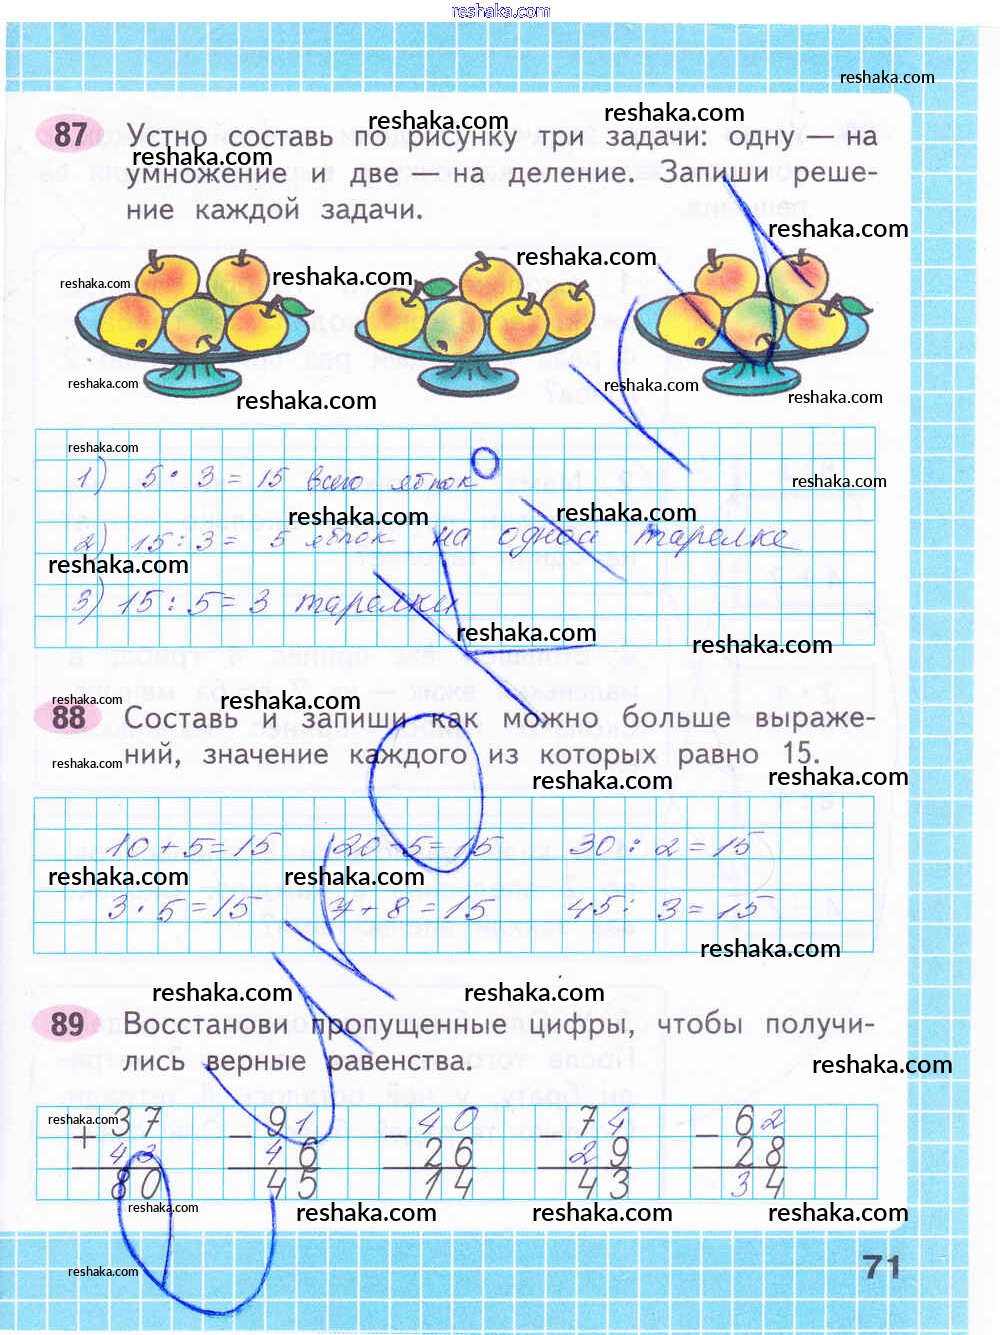 reshaka.com
reshaka.com
87 Устно составь по рисунку три задачи: одну — на
умножение и две — на деление. Запиши реше-
ние каждой задачи.
1) 5 · 3 = 15 всего яблок
2) 15 : 3 = 5 яблок на одной тарелке
3) 15 : 5 = 3 тарелки
88 Составь и запиши как можно больше выраже-
ний, значение каждого из которых равно 15.
10 + 5 = 15 20 - 5 = 15 30 : 2 = 15
3 · 5 = 15 7 + 8 = 15 45 : 3 = 15
89 Восстанови пропущенные цифры, чтобы получи-
лись верные равенства.
+ 37 − 91 − 40 − 74 − 62
43 46 26 29 28
80 45 14 43 34
71